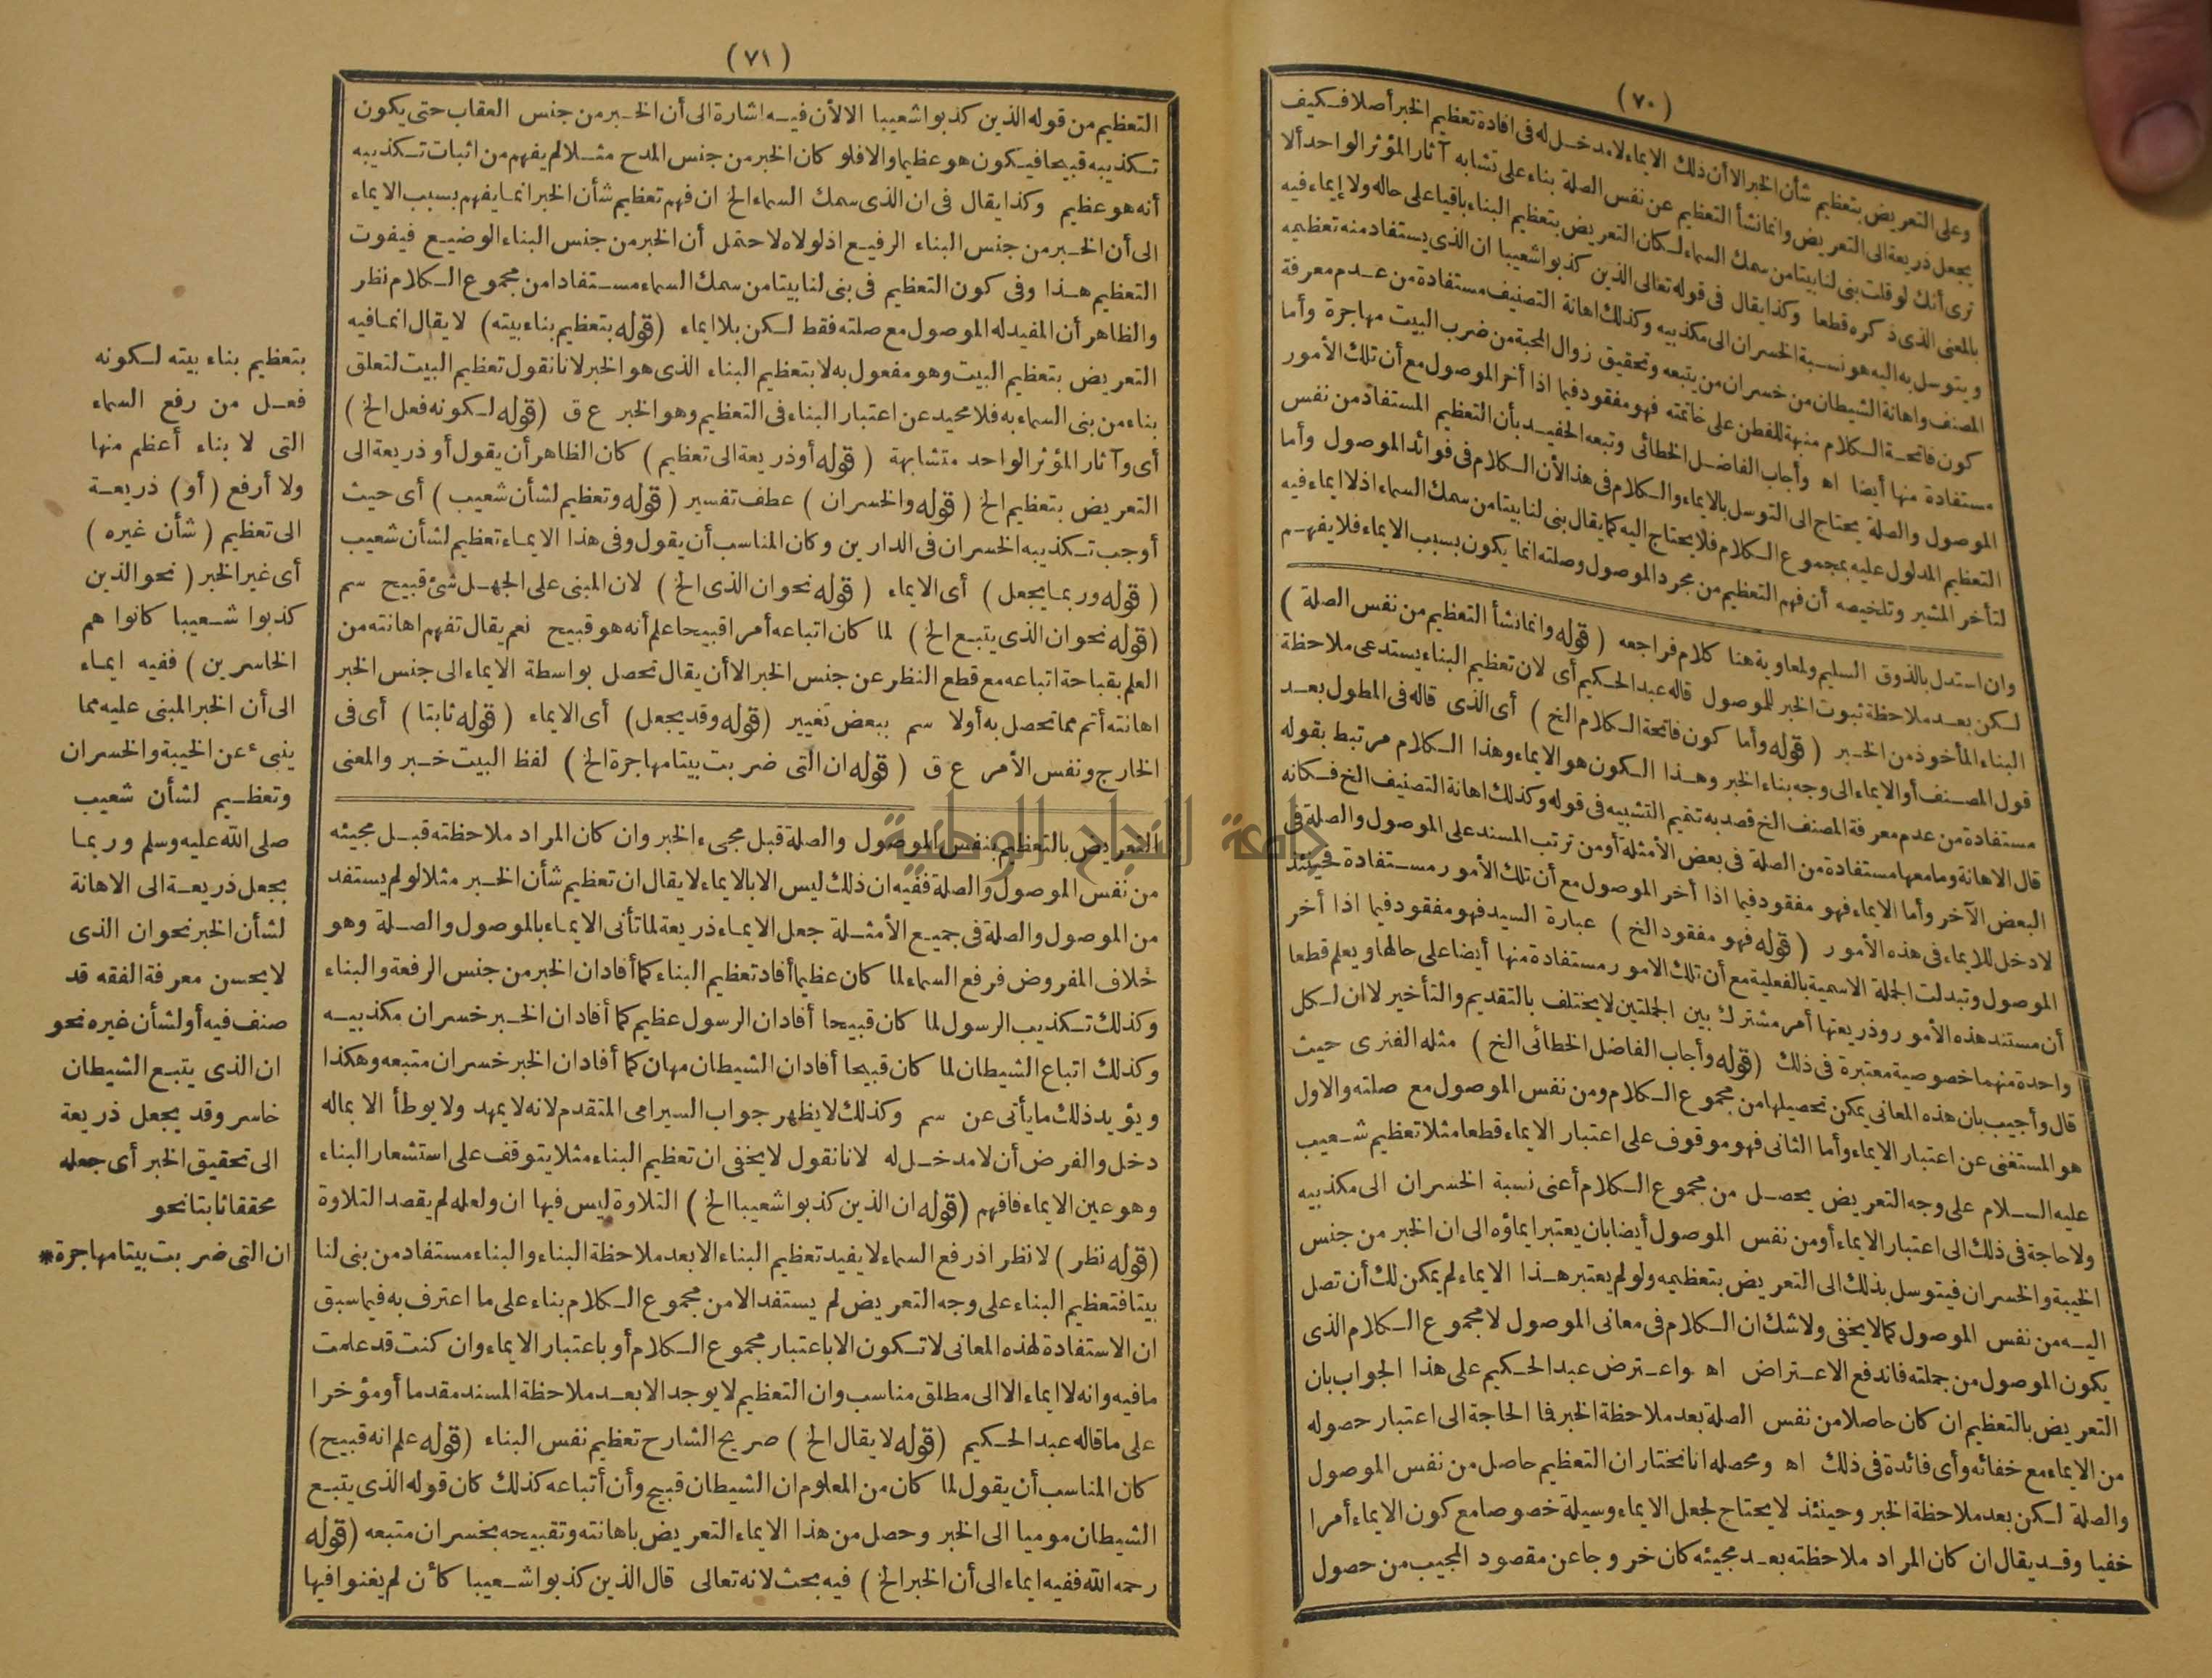 (٧٠)
وعلى التعريض بتعظيم شأن الخبر الا أن ذلك الايماء لا مدخل له فى افادة تعظيم الخبر أصلا فكيف
يجعل ذريعة الى التعريض وانما نشأ التعظيم عن نفس الصلة بناء على تشابه آثار المؤثر الواحد ألا
ترى أنك لو قلت بنى لنا بيتا من سمك السماء لكان التعريض بتعظيم البناء باقيا على حاله ولا إيماء فيه
بالمعنى الذى ذكره قطعا وكذا يقال فى قوله تعالى الذين كذبوا شعيبا ان الذى يستفاد منه تعظيمه
ويتوسل به اليه هو نسبة الخسران الى مكذبيه وكذلك اهانة التصنيف مستفادة من عدم معرفة
المصنف واهانة الشيطان من خسران من يتبعه وتحقيق زوال المحبة من ضرب البيت مهاجرة وأما
كون فاتحة الكلام منبهة للفطن على خاتمته فهو مفقود فيما اذا أخر الموصول مع أن تلك الأمور
مستفادة منها أيضا اه وأجاب الفاضل الخطائى وتبعه الحفيد بأن التعظيم المستفاد من نفس
الموصول والصلة يحتاج الى التوسل بالايماء والكلام فى هذا لأن الكلام فى فوائد الموصول وأما
التعظيم المدلول عليه بمجموع الكلام فلا يحتاج اليه كما يقال بنى لنا بيتا من سمك السماء اذ لا ايماء فيه
لتأخر المشير وتلخيصه أن فهم التعظيم من مجرد الموصول وصلته انما يكون بسبب الايماء فلا يفهم
وان استدل بالذوق السليم ولمعاوية هنا كلام فراجعه (قوله وانما نشأ التعظيم من نفس الصلة)
لكن بعد ملاحظة ثبوت الخبر للموصول قاله عبد الحكيم أى لان تعظيم البناء يستدعى ملاحظة
البناء المأخوذ من الخبر (قوله وأما كون فاتحة الكلام الخ) أى الذى قاله فى المطول بعد
قول المصنف أو الايماء الى وجه بناء الخبر وهذا الكون هو الايماء وهذا الكلام مرتبط بقوله
مستفادة من عدم معرفة المصنف الخ قصد به تتميم التشبيه فى قوله وكذلك اهانة التصنيف الخ فكانه
قال الاهانة وما معها مستفادة من الصلة فى بعض الأمثلة أو من ترتب المسند على الموصول والصلة فى
البعض الآخر وأما الايماء فهو مفقود فيما اذا أخر الموصول مع أن تلك الأمور مستفادة فحينئذ
لا دخل للايماء فى هذه الأمور (قوله فهو مفقود الخ) عبارة السيد فهو مفقود فيما اذا أخر
الموصول وتبدلت الجملة الاسمية بالفعلية مع أن تلك الامور مستفادة منها أيضا على حالها ويعلم قطعا
أن مستند هذه الأمور وذريعتها أمر مشترك بين الجملتين لا يختلف بالتقديم والتأخير لا ان لكل
واحدة منهما خصوصية معتبرة فى ذلك (قوله وأجاب الفاضل الخطائى الخ) مثله الفنرى حيث
قال وأجيب بان هذه المعانى يمكن تحصيلها من مجموع الكلام ومن نفس الموصول مع صلته والاول
هو المستغنى عن اعتبار الايماء وأما الثانى فهو موقوف على اعتبار الايماء قطعا مثلا تعظيم شعيب
عليه السلام على وجه التعريض يحصل من مجموع الكلام أعنى نسبة الخسران الى مكذبيه
ولا حاجة فى ذلك الى اعتبار الايماء أو من نفس الموصول أيضا بان يعتبر ايماؤه الى ان الخبر من جنس
الخيبة والخسران فيتوسل بذلك الى التعريض بتعظيمه ولو لم يعتبر هذا الايماء لم يمكن لك أن تصل
اليه من نفس الموصول كما لا يخفى ولا شك ان الكلام فى معانى الموصول لا مجموع الكلام الذى
يكون الموصول من جملته فاندفع الاعتراض اه واعترض عبد الحكيم على هذا الجواب بان
التعريض بالتعظيم ان كان حاصلا من نفس الصلة بعد ملاحظة الخبر فما الحاجة الى اعتبار حصوله
من الايماء مع خفائه وأى فائدة فى ذلك اه ومحصله انا نختار ان التعظيم حاصل من نفس الموصول
والصلة لكن بعد ملاحظة الخبر وحينئذ لا يحتاج لجعل الايماء وسيلة خصوصا مع كون الايماء أمرا
خفيا وقد يقال ان كان المراد ملاحظته بعد مجيئه كان خروجا عن مقصود المجيب من حصول
(٧١)
التعظيم من قوله الذين كذبوا شعيبا الا لأن فيه اشارة الى أن الخبر من جنس العقاب حتى يكون
تكذيبه قبيحا فيكون هو عظيما والا فلو كان الخبر من جنس المدح مثلا لم يفهم من اثبات تكذيبه
أنه هو عظيم وكذا يقال فى ان الذى سمك السماء الخ ان فهم تعظيم شأن الخبر انما يفهم بسبب الايماء
الى أن الخبر من جنس البناء الرفيع اذ لولاه لاحتمل أن الخبر من جنس البناء الوضيع فيفوت
التعظيم هذا وفى كون التعظيم فى بنى لنا بيتا من سمك السماء مستفادا من مجموع الكلام نظر
والظاهر أن المفيد له الموصول مع صلته فقط لكن بلا ايماء (قوله بتعظيم بناء بيته) لا يقال انما فيه
التعريض بتعظيم البيت وهو مفعول به لا بتعظيم البناء الذى هو الخبر لانا نقول تعظيم البيت لتعلق
بناء من بنى السماء به فلا محيد عن اعتبار البناء فى التعظيم وهو الخبر ع ق (قوله لكونه فعل الخ)
أى وآثار المؤثر الواحد متشابهة (قوله أو ذريعة الى تعظيم) كان الظاهر أن يقول أو ذريعة الى
التعريض بتعظيم الخ (قوله والخسران) عطف تفسير (قوله وتعظيم لشأن شعيب) أى حيث
أوجب تكذيبه الخسران فى الدارين وكان المناسب أن يقول وفى هذا الايماء تعظيم لشأن شعيب
(قوله وربما يجعل) أى الايماء (قوله نحو ان الذى الخ) لان المبنى على الجهل شئ قبيح سم
(قوله نحو ان الذى يتبع الخ) لما كان اتباعه أمرا قبيحا علم أنه هو قبيح نعم يقال تفهم اهانته من
العلم بقباحة اتباعه مع قطع النظر عن جنس الخبر الا أن يقال تحصل بواسطة الايماء الى جنس الخبر
اهانته أتم مما تحصل به أولا سم ببعض تغيير (قوله وقد يجعل) أى الايماء (قوله ثابتا) أى فى
الخارج ونفس الأمر ع ق (قوله ان التى ضربت بيتا مهاجرة الخ) لفظ البيت خبر والمعنى
التعريض بالتعظيم بنفس الموصول والصلة قبل مجىء الخبر وان كان المراد ملاحظته قبل مجيئه
من نفس الموصول والصلة ففيه ان ذلك ليس الا بالايماء لا يقال ان تعظيم شأن الخبر مثلا لو لم يستفد
من الموصول والصلة فى جميع الأمثلة جعل الايماء ذريعة لما تأتى الايماء بالموصول والصلة وهو
خلاف المفروض فرفع السماء لما كان عظيما أفاد تعظيم البناء كما أفاد ان الخبر من جنس الرفعة والبناء
وكذلك تكذيب الرسول لما كان قبيحا أفاد ان الرسول عظيم كما أفاد ان الخبر خسران مكذبيه
وكذلك اتباع الشيطان لما كان قبيحا أفاد ان الشيطان مهان كما أفاد ان الخبر خسران متبعه وهكذا
ويؤيد ذلك ما يأتى عن سم وكذلك لا يظهر جواب السيرامى المتقدم لانه لا يمهد ولا يوطأ الا بماله
دخل والفرض أن لا مدخل له لانا نقول لا يخفى ان تعظيم البناء مثلا يتوقف على استشعار البناء
وهو عين الايماء فافهم (قوله ان الذين كذبوا شعيبا الخ) التلاوة ليس فيها ان ولعله لم يقصد التلاوة
(قوله نظر) لا نظر اذ رفع السماء لا يفيد تعظيم البناء الا بعد ملاحظة البناء والبناء مستفاد من بنى لنا
بيتا فتعظيم البناء على وجه التعريض لم يستفد الا من مجموع الكلام بناء على ما اعترف به فيما سبق
ان الاستفادة لهذه المعانى لا تكون الا باعتبار مجموع الكلام أو باعتبار الايماء وان كنت قد علمت
ما فيه وانه لا ايماء الا الى مطلق مناسب وان التعظيم لا يوجد الا بعد ملاحظة المسند مقدما أو مؤخرا
على ما قاله عبد الحكيم (قوله لا يقال الخ) صريح الشارح تعظيم نفس البناء (قوله علم انه قبيح)
كان المناسب أن يقول لما كان من المعلوم ان الشيطان قبيح وأن أتباعه كذلك كان قوله الذى يتبع
الشيطان موميا الى الخبر وحصل من هذا الايماء التعريض باهانته وتقبيحه بخسران متبعه (قوله
رحمه الله ففيه ايماء الى أن الخبر الخ) فيه بحث لانه تعالى قال الذين كذبوا شعيبا كأن لم يغنوا فيها
بتعظيم بناء بيته لكونه
فعل من رفع السماء
التى لا بناء أعظم منها
ولا أرفع (أو) ذريعة
الى تعظيم (شأن غيره)
أى غير الخبر (نحو الذين
كذبوا شعيبا كانوا هم
الخاسرين) ففيه ايماء
الى أن الخبر المبنى عليه مما
ينبىء عن الخيبة والخسران
وتعظيم لشأن شعيب
صلى الله عليه وسلم وربما
يجعل ذريعة الى الاهانة
لشأن الخبر نحو ان الذى
لا يحسن معرفة الفقه قد
صنف فيه أو لشأن غيره نحو
ان الذى يتبع الشيطان
خاسر وقد يجعل ذريعة
الى تحقيق الخبر أى جعله
محققا ثابتا نحو
ان التى ضربت بيتا مهاجرة*
جامعة النجاح الوطنية